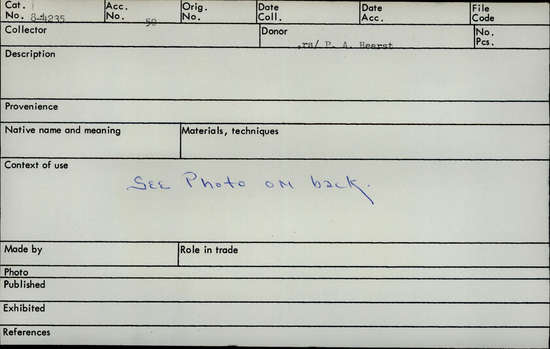 Cat. No. 8-4235 Acc. No. 50 Orig. No. Date Coll. Date Acc. File Code
Collector Donor ,rs/ P. A. Hearst No. Pcs.
Description
Provenience
Native name and meaning Materials, techniques
Context of use
SEE Photo on back.
Made by Role in trade
Photo
Published
Exhibited
References